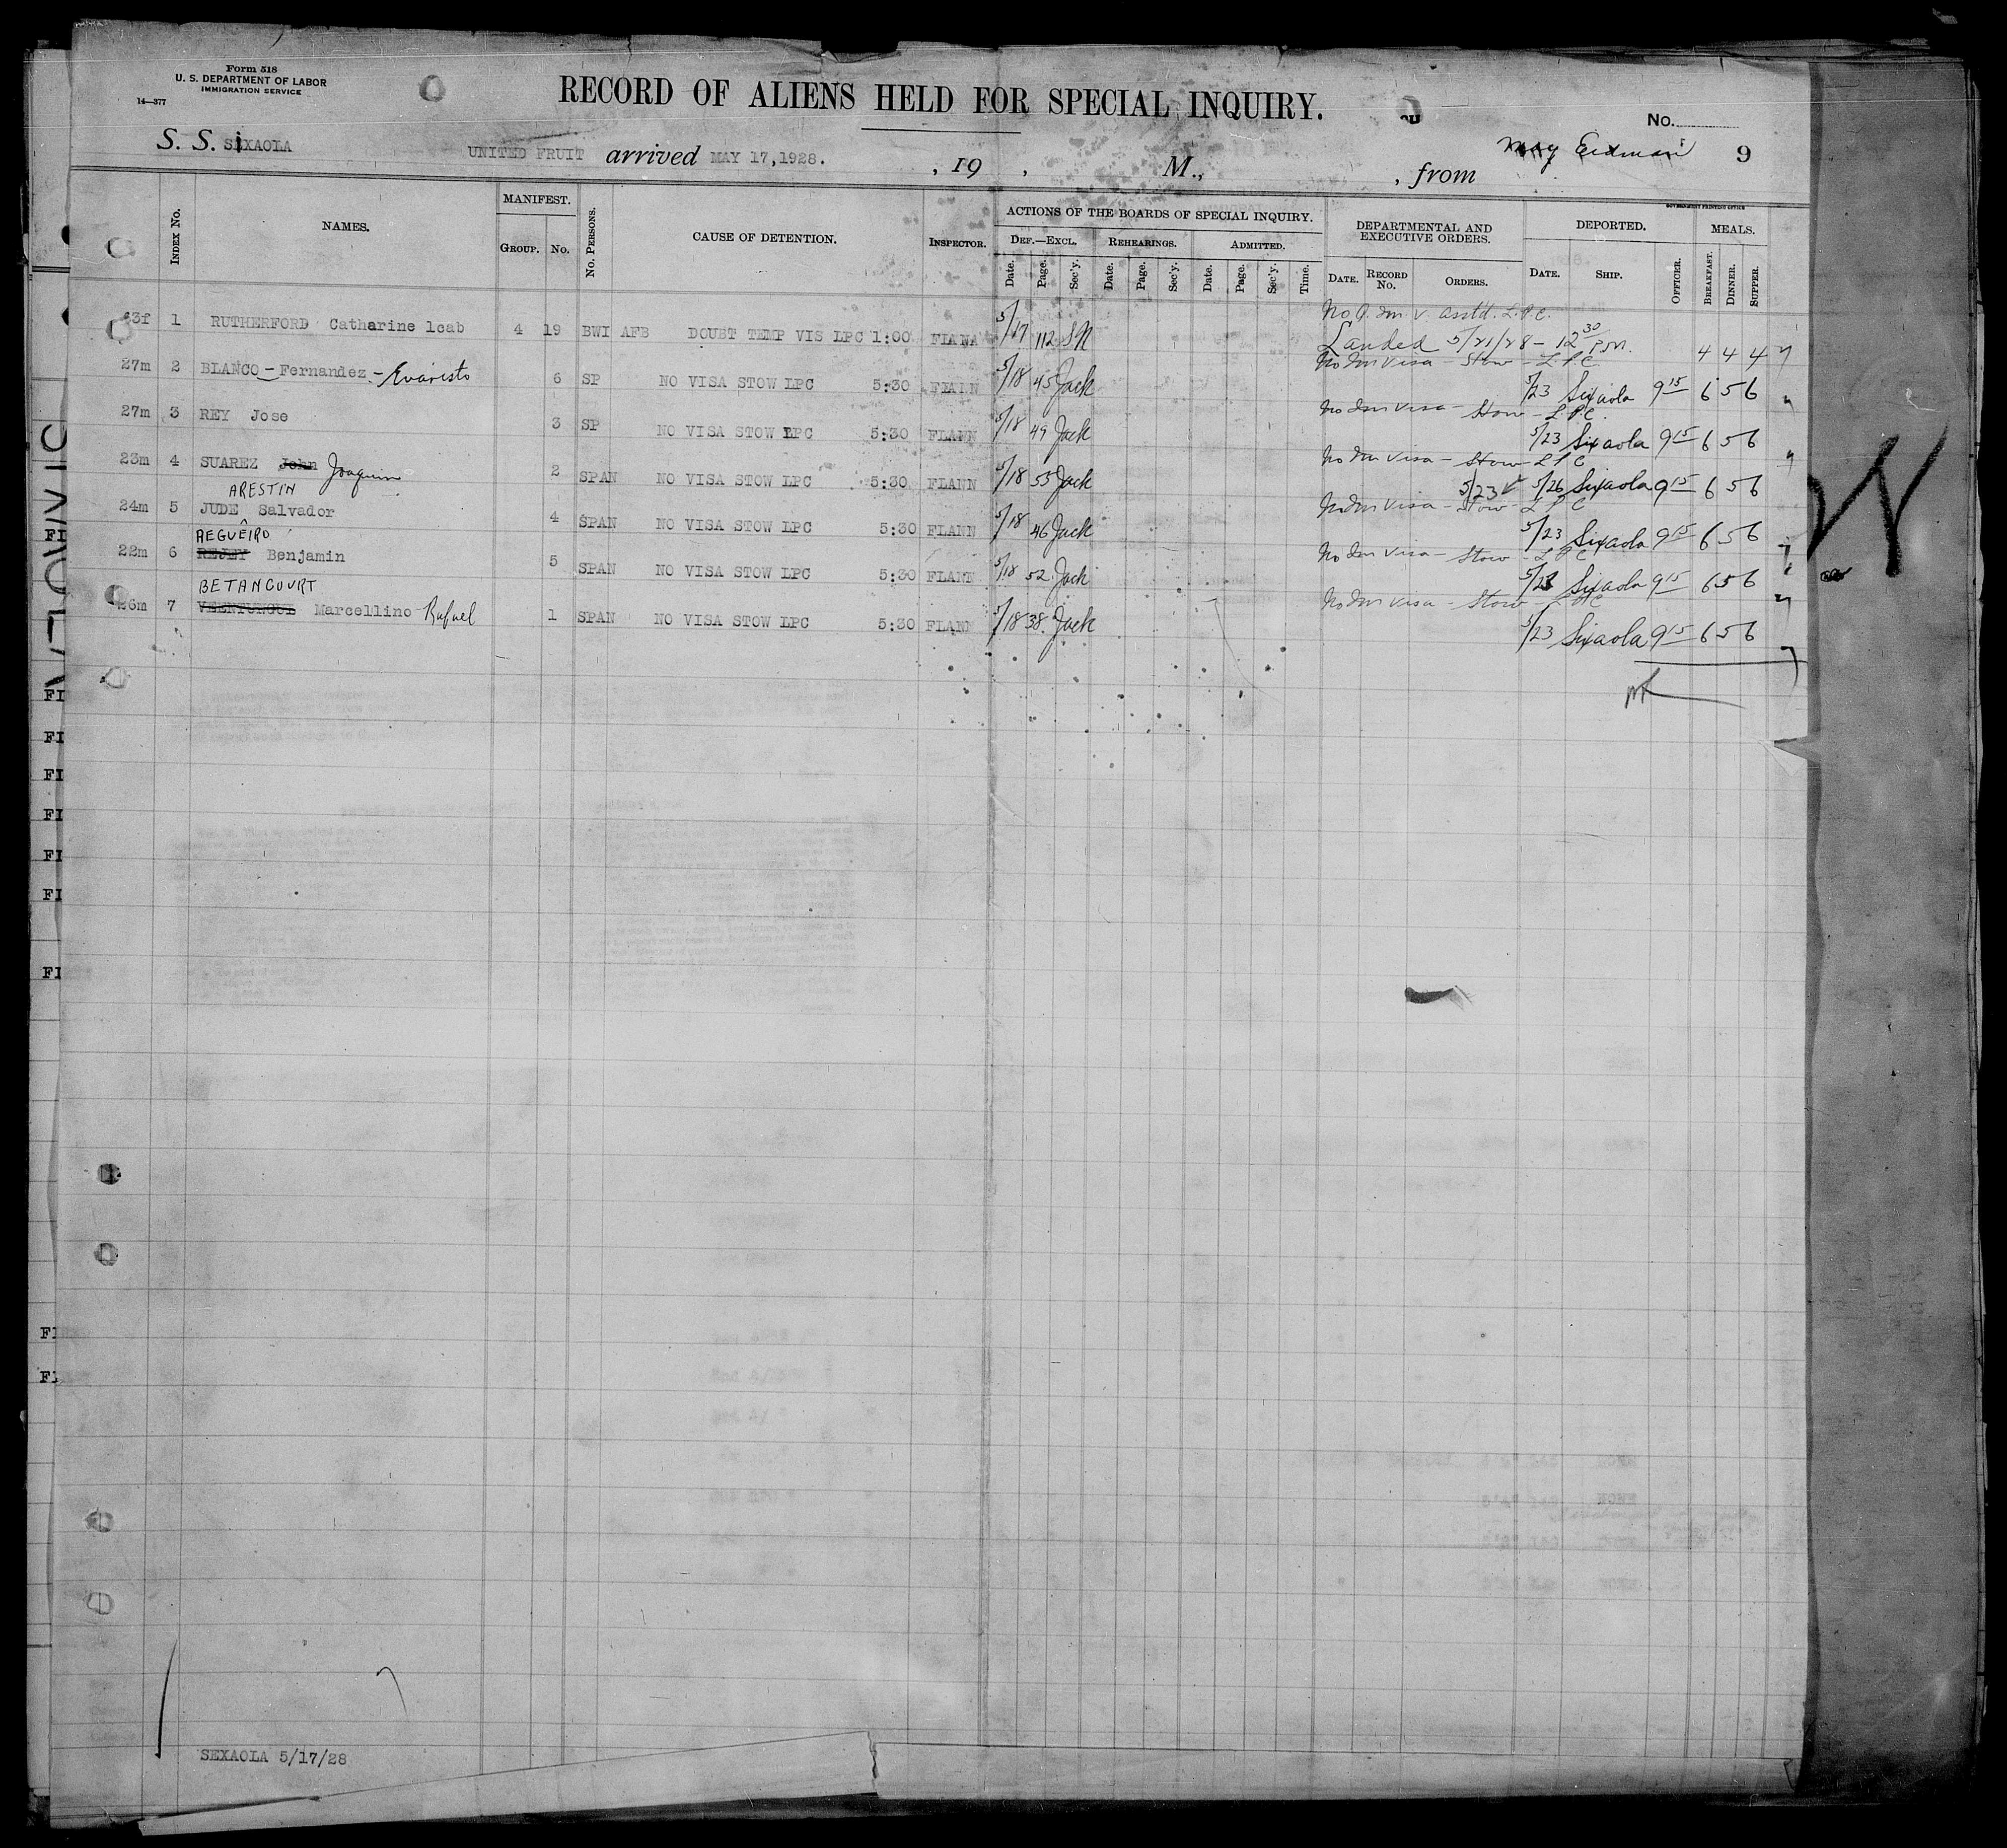 Form 518
U. S. DEPARTMENT OF LABOR
IMMIGRATION SERVICE
14—377
RECORD OF ALIENS HELD FOR SPECIAL INQUIRY.
No.
S. S. SIXAOLA UNITED FRUIT arrived MAY 17,1928. , 19 , M., , from May Erdman 9
GOVERNMENT PRINTING OFFICE
INDEX No. NAMES. MANIFEST. GROUP. No. No. PERSONS. CAUSE OF DETENTION. INSPECTOR. ACTIONS OF THE BOARDS OF SPECIAL INQUIRY. DEPARTMENTAL AND EXECUTIVE ORDERS. DEPORTED. MEALS.
DEF.—EXCL. REHEARINGS. ADMITTED.
Date. Page. Sec'y. Date. Page. Sec'y. Date. Page. Sec'y. Time. DATE. RECORD No. ORDERS. DATE. SHIP. OFFICER. BREAKFAST. DINNER. SUPPER.
No Q. Im v. asstd. L.P.C.
63f 1 RUTHERFORD Catharine lcab 4 19 BWI AFB DOUBT TEMP VIS LPC 1:00 FLANA 5/17 112 SN Landed 5/21/28 - 12 30 P.M. 4 4 4
No Im visa - Stow - L.P.C.
27m 2 BLANCO - Fernandez - Evaristo 6 SP NO VISA STOW LPC 5:30 FLANN 5/18 45 Jack 5/23 Sixaola 9 15 6 5 6
No Im visa - Stow - L.P.C.
27m 3 REY Jose 3 SP NO VISA STOW LPC 5:30 FLANN 5/18 49 Jack 5/23 Sixaola 9 15 6 5 6
No Im visa - Stow - L P C
23m 4 SUAREZ John Joaquim 2 SPAN NO VISA STOW LPC 5:30 FLANN 5/18 55 Jack 5/23 5/26 Sixaola 9 15 6 5 6
ARESTIN
No Im visa - Stow - L P C
24m 5 JUDE Salvador 4 SPAN NO VISA STOW LPC 5:30 FLANN 5/18 46 Jack 5/23 Sixaola 9 15 6 5 6
REGUEIRO
No Im visa - Stow - L P C
22m 6 REJEY Benjamin 5 SPAN NO VISA STOW LPC 5:30 FLANN 5/18 52 Jack 5/23 Sixaola 9 15 6 5 6
BETANCOURT
No Im visa - Stow - L P C
26m 7 Marcellino Rafael 1 SPAN NO VISA STOW LPC 5:30 FLANN 5/18 38 Jack 5/23 Sixaola 9 15 6 5 6
7
SEXAOLA 5/17/28